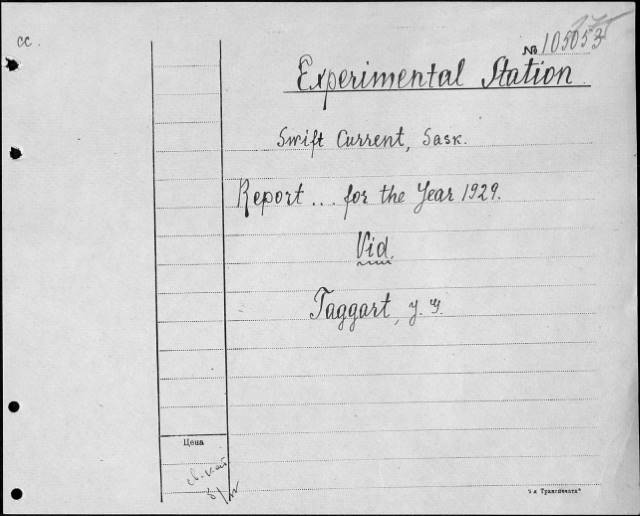 cc.
№ 105053
Experimental Station
Swift Current, Sask.
Report ... for the Year 1929.
Vid.
Taggart, J. G.
Цена